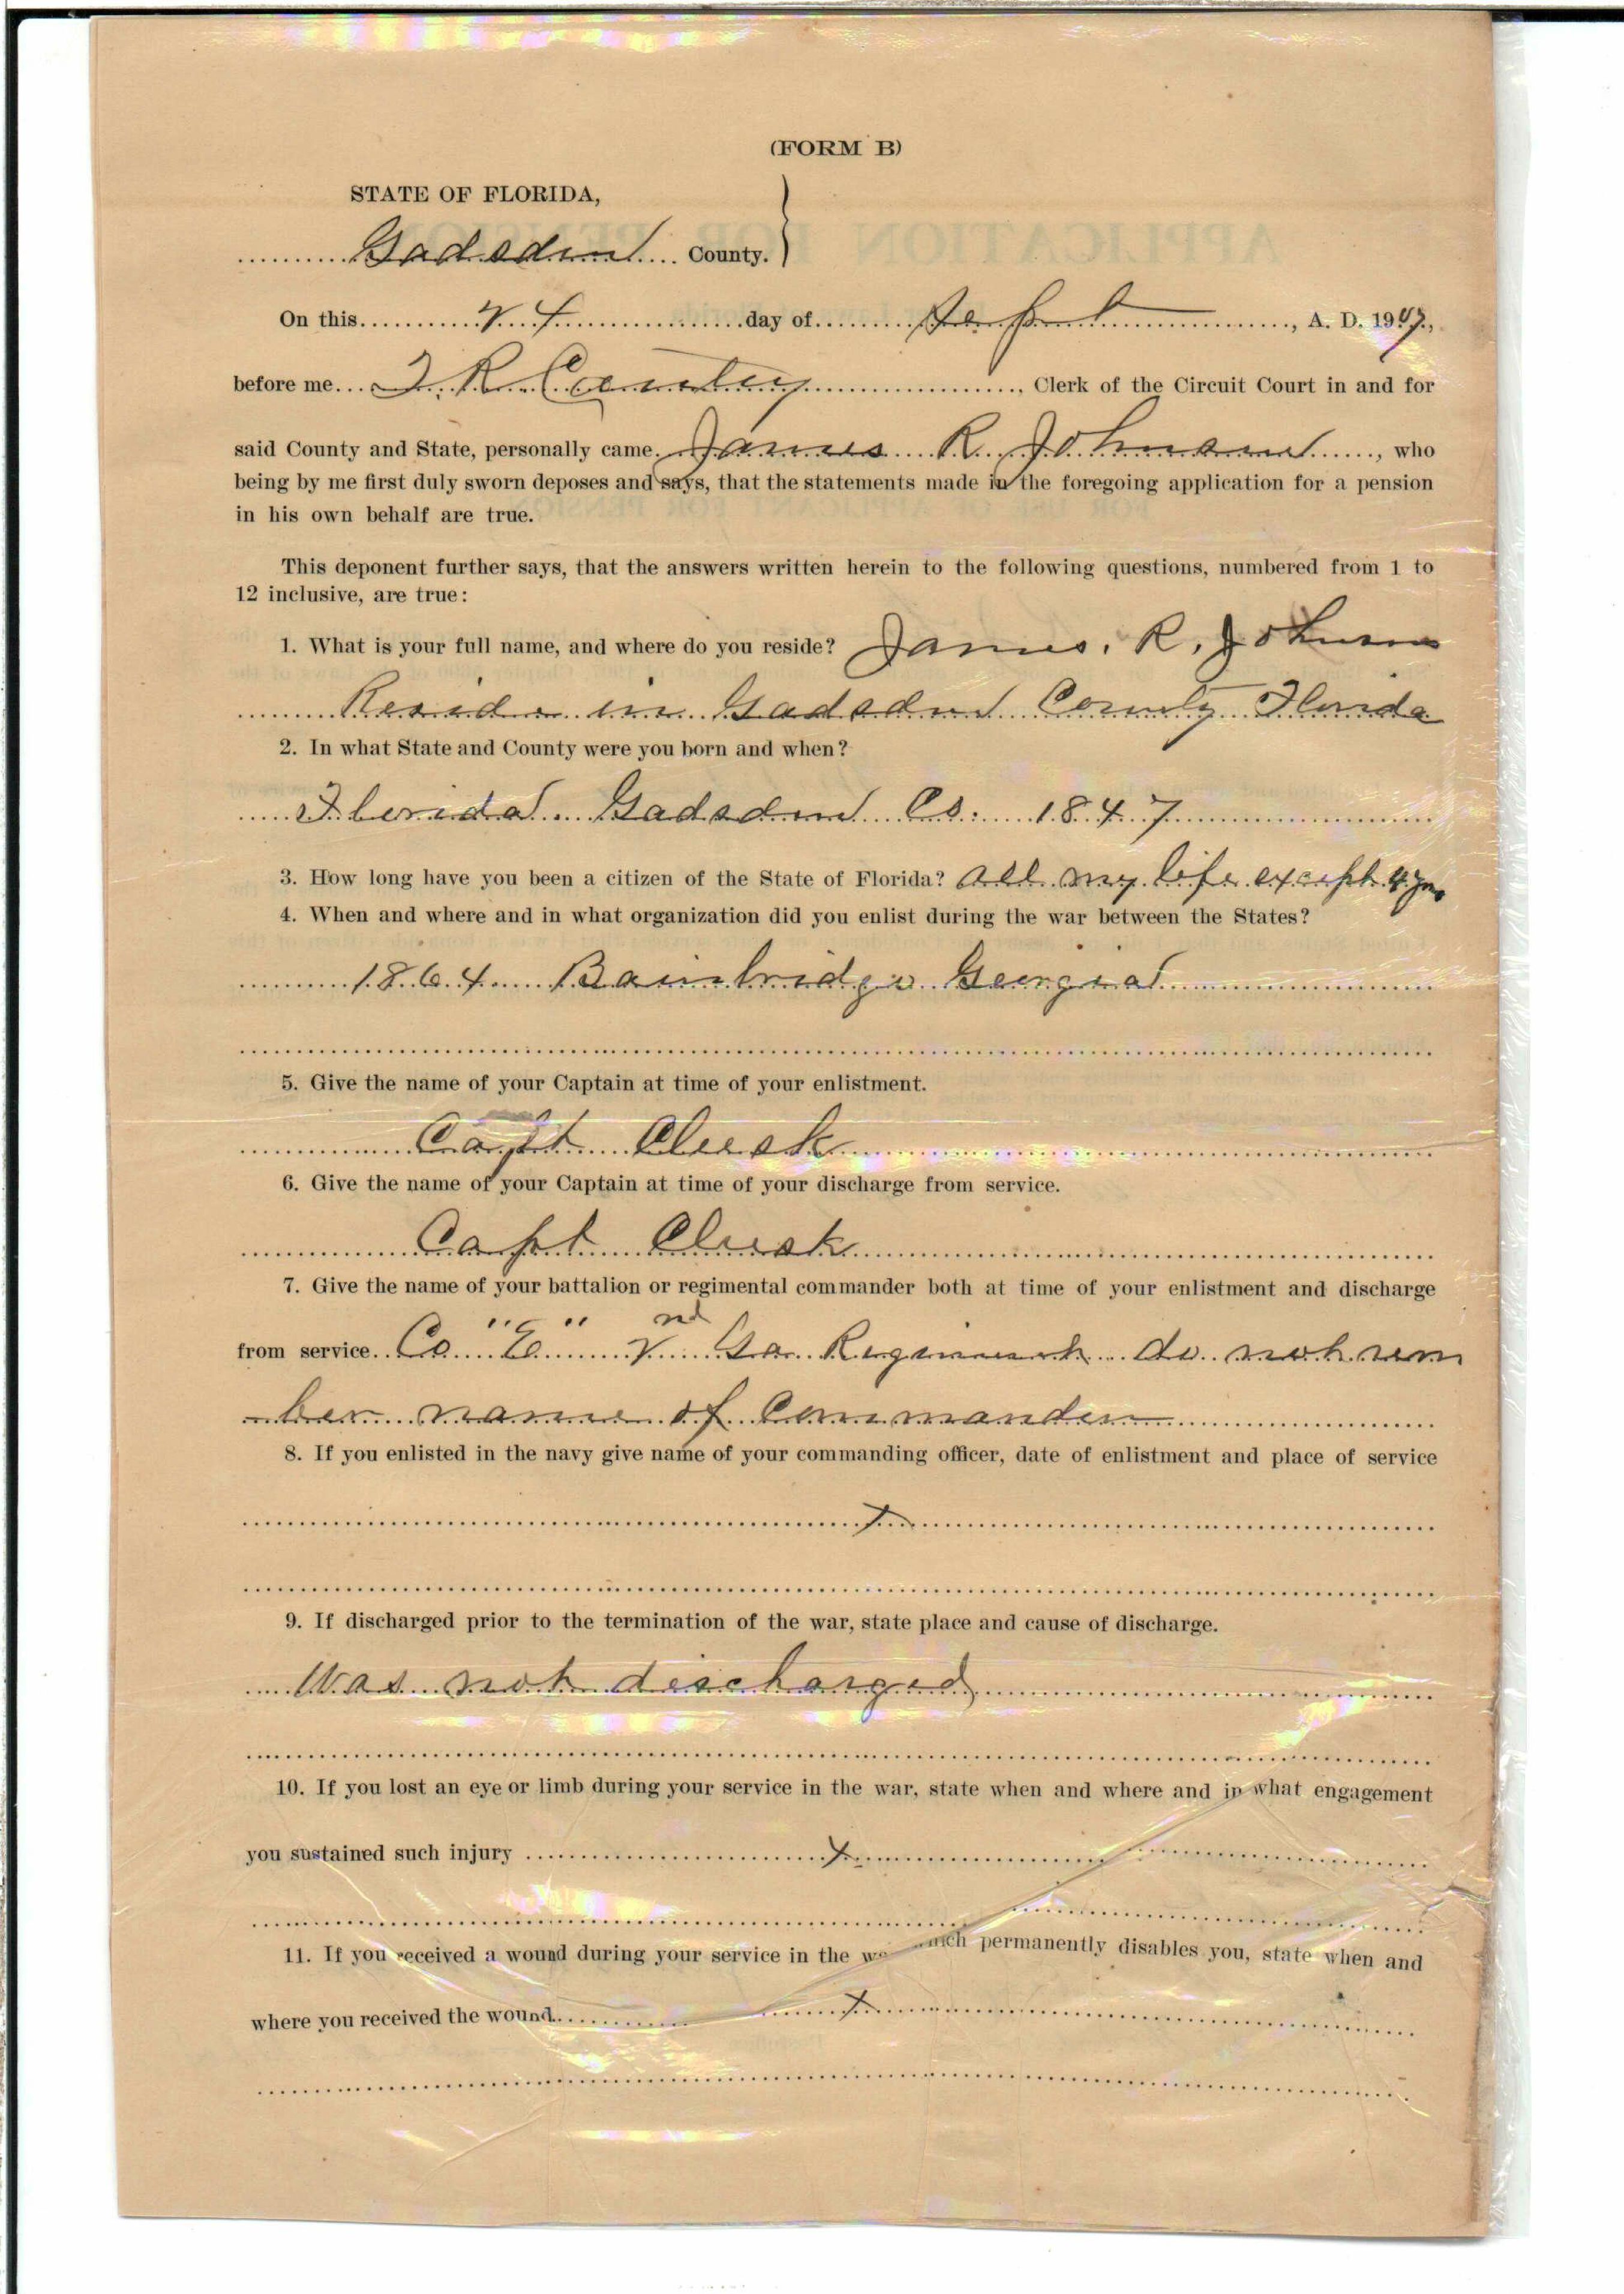 (FORM B)
STATE OF FLORIDA,
Gadsden County.
On this 24 day of Sept, A. D. 1907,
before me , Clerk of the Circuit Court in and for
said County and State, personally came James R. Johnson, who
being by me first duly sworn deposes and says, that the statements made in the foregoing application for a pension
in his own behalf are true.
This deponent further says, that the answers written herein to the following questions, numbered from 1 to
12 inclusive, are true:
1. What is your full name, and where do you reside? James. R. Johnson
Reside in Gadsden County Florida
2. In what State and County were you born and when?
Florida Gadsden Co. 1847
3. How long have you been a citizen of the State of Florida? All my life except 4 yrs
4. When and where and in what organization did you enlist during the war between the States?
1864 Bainbridge Georgia
5. Give the name of your Captain at time of your enlistment.
Capt
6. Give the name of your Captain at time of your discharge from service.
Capt
7. Give the name of your battalion or regimental commander both at time of your enlistment and discharge
from service Co "E" 2nd Ga Regiment do not rem
-ber name of Commander
8. If you enlisted in the navy give name of your commanding officer, date of enlistment and place of service
x
9. If discharged prior to the termination of the war, state place and cause of discharge.
Was not discharged
10. If you lost an eye or limb during your service in the war, state when and where and in what engagement
you sustained such injury x
11. If you received a wound during your service in the wa which permanently disables you, state when and
where you received the wound x